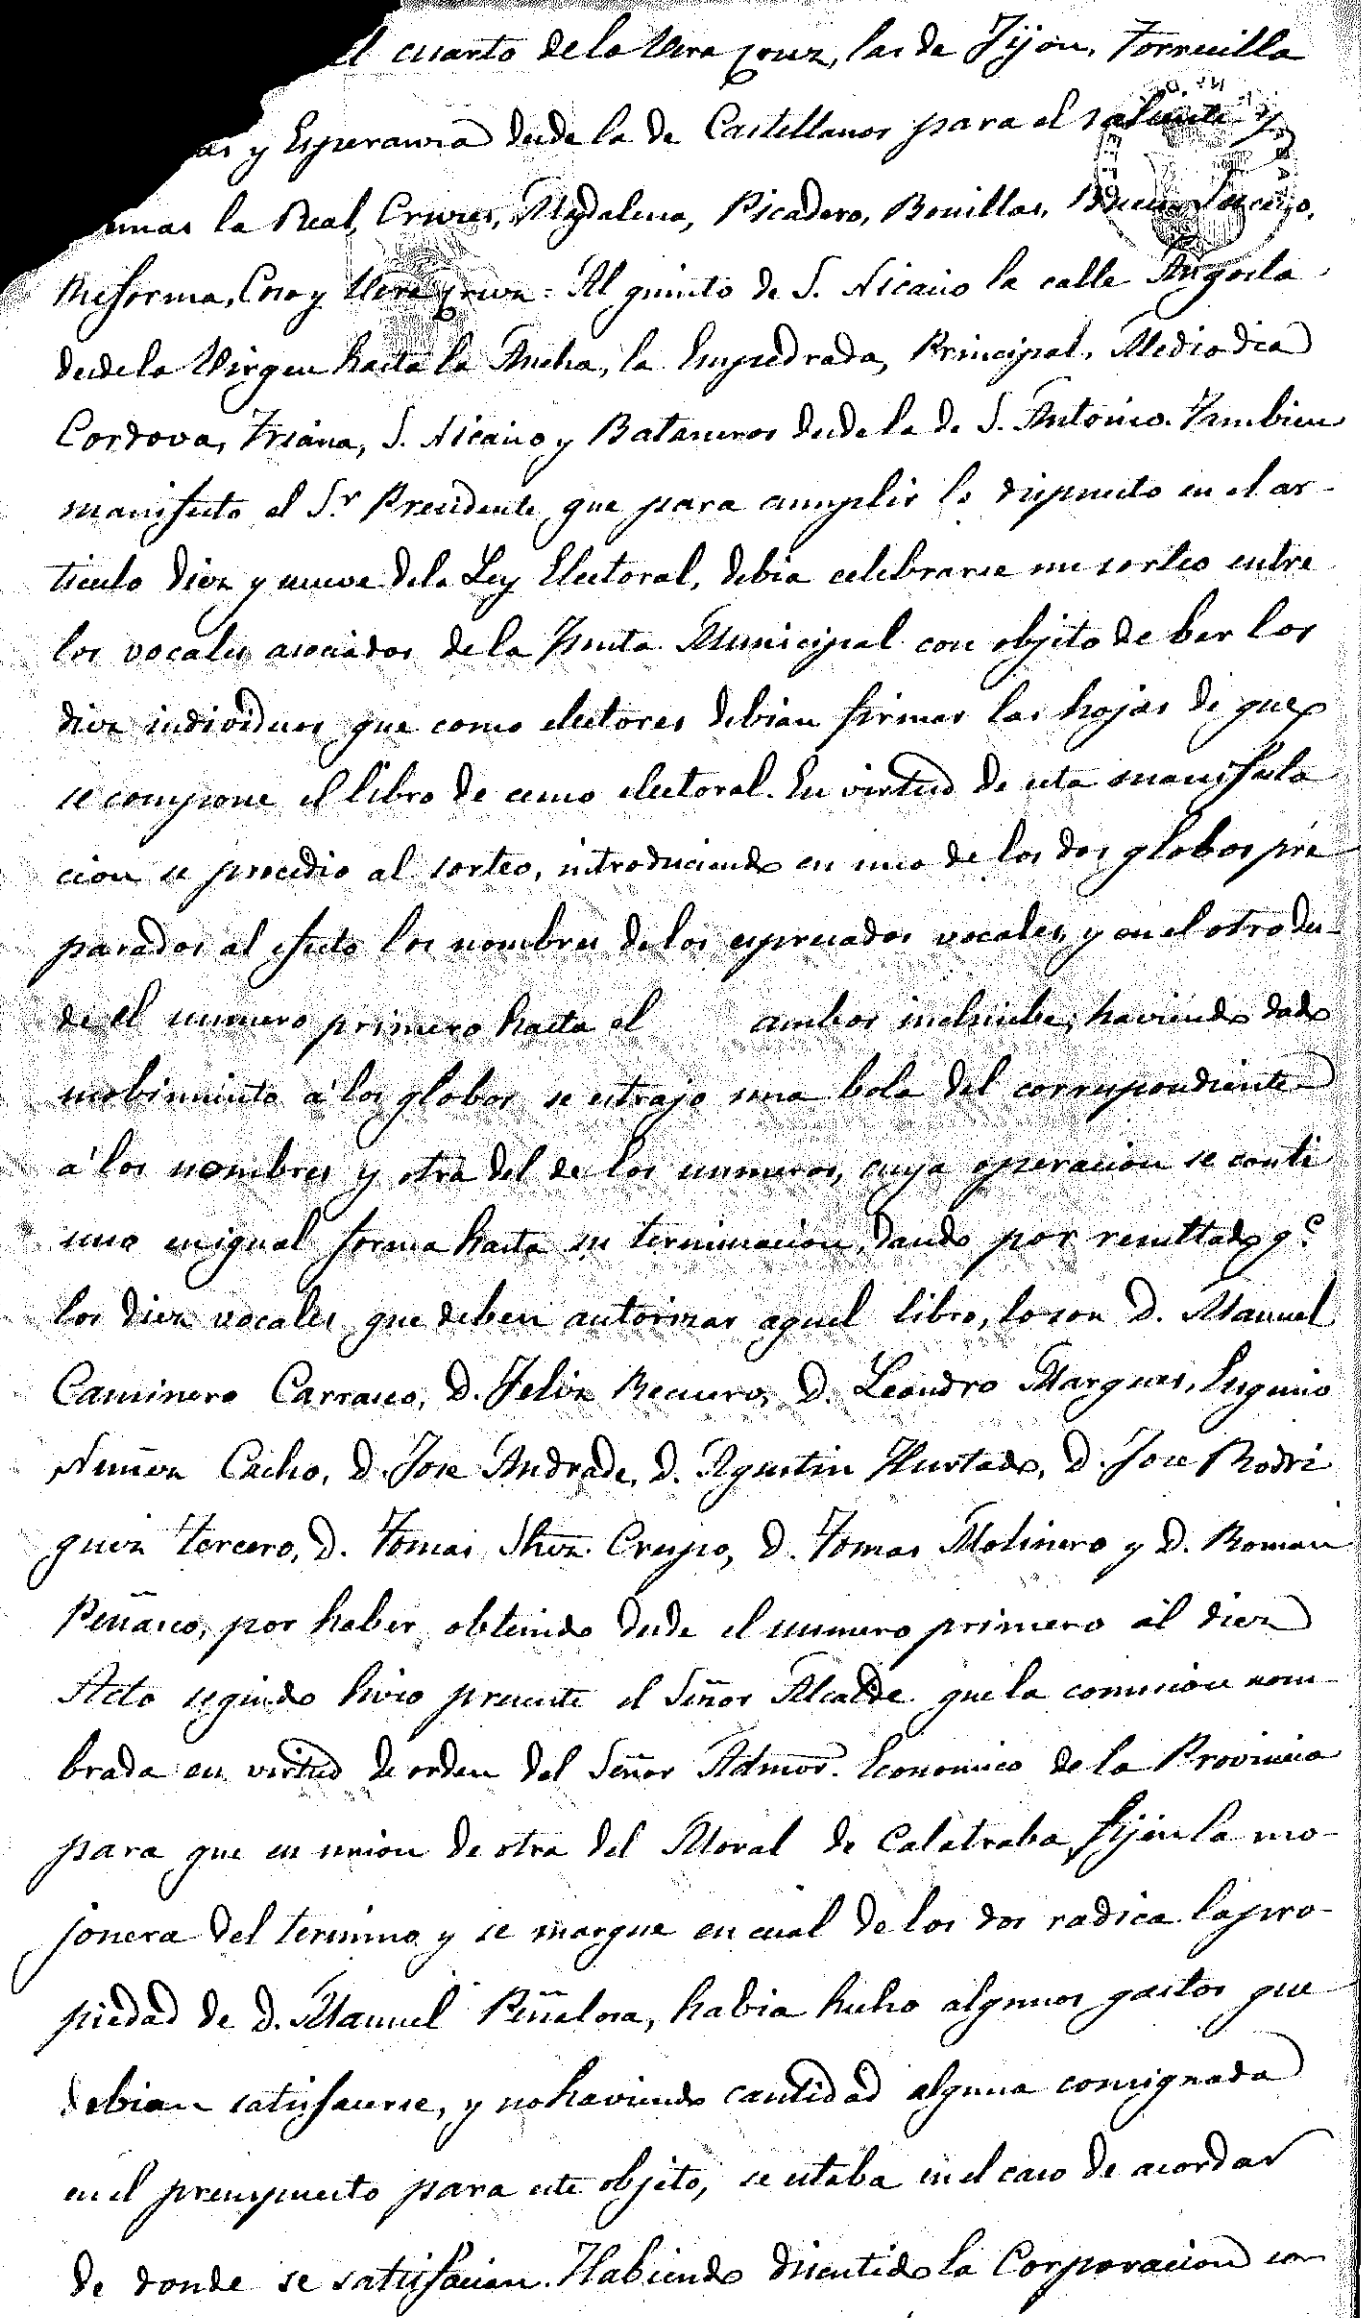 el cuarto de la Vera Cruz, las de Jijon, Torrecilla
y Esperanza desde la de Castellanos para el saliente y
la Real, Cruces, Magdalena, Picadero, Bonillas, Buen Suceso,
Reforma, Coso y Vera Cruz = Al quinto de S. Nicasio la calle Angosta
desde la Virgen hasta la Ancha, la Empedrada, Principal, Mediodia
Cordova, Triana, S. Nicasio y Bataneros desde la de S. Antonio. Tambien
manifesto el Sr. Presidente que para cumplir lo dispuesto en el ar-
ticulo diez y nueve de la Ley Electoral, debia celebrarse un sorteo entre
los vocales asociados de la Junta Municipal con objeto de ber los
diez individuos que como electores debian firmar las hojas de que
se compone el libro de censo electoral. En virtud de esta manifesta
cion se procedio al sorteo, introduciendo en uno de los dos globos pre
parados al efecto los nombres de los espresados vocales, y en el otro des-
de el numero primero hasta el ambos inclusibe; haviendo dado
mobimiento á los globos se estrajo una bola del correspondiente
á los nombres y otra del de los numeros, cuya operacion se conti
nuo en igual forma hasta su terminacion, dando por resultado qe.
los diez vocales que deben autorizar aquel libro, lo son D. Manuel
Caminero Carrasco, D. Felix Recuero, D. Leandro Marques, Eugenio
Nuñez Cacho, D. Jose Andrade, D. Agustin Hurtado, D. Jose Rodri
guez Tercero, D. Tomas Shez. Crespo, D. Tomas Molinero y D. Roman
Peñasco, por haber obtenido desde el numero primero al diez
Acto seguido hizo presente el Señor Alcalde que la comision nom-
brada en virtud de orden del Señor Admor. Economico de la Provincia
para que en union de otra del Moral de Calatraba fijen la mo-
jonera del termino y se marque en cual de los dos radica la pro-
piedad de D. Manuel Peñalosa, habia hecho algunos gastos que
debian satisfacerse, y no haviendo cantidad alguna consignada
en el presupuesto para este objeto, se estaba en el caso de acordar
de donde se satisfacian. Habiendo discutido la Corporacion con